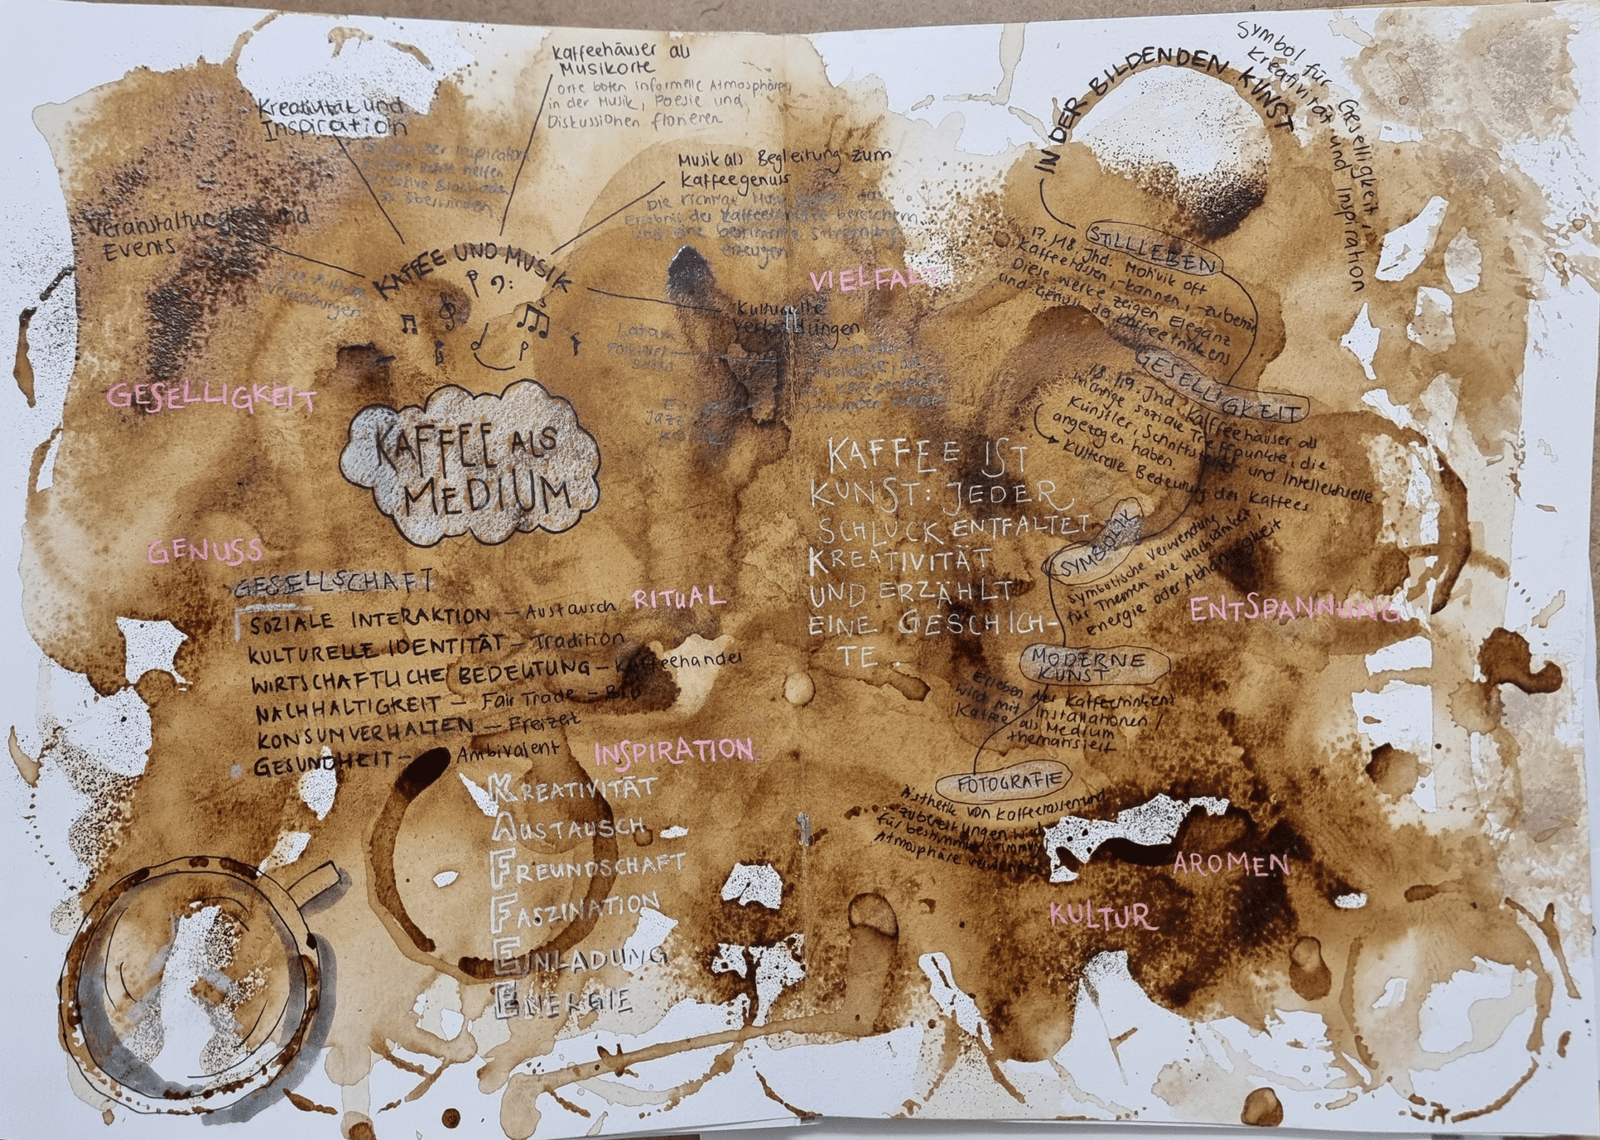 Kreativität und
Inspiration
Kaffeehäuser als
Musikorte
Orte boten informelle Atmosphären
in der Musik, Poesie und
Diskussionen florieren
Musik als Begleitung zum
Kaffeegenuss
Die richtige Musik
Erlebnis des bereichern
und eine bestimmte Stimmung
erzeugen
Veranstaltungen und
Events
KAFFEE UND MUSIK
Kulturelle
Verbindungen
VIELFALT
GESELLIGKEIT
KAFFEE ALS
MEDIUM
GENUSS
GESELLSCHAFT
SOZIALE INTERAKTION – Austausch
KULTURELLE IDENTITÄT – Tradition
WIRTSCHAFTLICHE BEDEUTUNG – Kaffeehandel
NACHHALTIGKEIT – Fair Trade – Bio
KONSUMVERHALTEN – Freizeit
GESUNDHEIT – Ambivalent
RITUAL
INSPIRATION
KREATIVITÄT
AUSTAUSCH
FREUNDSCHAFT
FASZINATION
EINLADUNG
ENERGIE
IN DER BILDENDEN KUNST
Symbol für Geselligkeit,
Kreativität und Inspiration
STILLLEBEN
17./18. Jhd. Motivik oft
Kaffeetassen, -kannen, -zubehör
Diese Werke zeigen Eleganz
und Genuss des Kaffeetrinkens
GESELLIGKEIT
18./19. Jhd. Kaffeehäuser als
soziale Treffpunkte, die
Künstler, Schriftsteller und Intellektuelle
angezogen haben.
Kulturelle Bedeutung des Kaffees
KAFFEE IST
KUNST: JEDER
SCHLUCK ENTFALTET
KREATIVITÄT
UND ERZÄHLT
EINE GESCHICH-
TE.
SYMBOLIK
Symbolische Verwendung
für Themen wie Wachsamkeit,
Energie oder Abhängigkeit
ENTSPANNUNG
MODERNE
KUNST
Erleben des Kaffeetrinkens
wird mit Installationen /
Kaffee als Medium
thematisiert
FOTOGRAFIE
Ästhetik von Kaffeetassen und
-zubereitungen wird
für bestimmte Stimmung
Atmosphäre
AROMEN
KULTUR